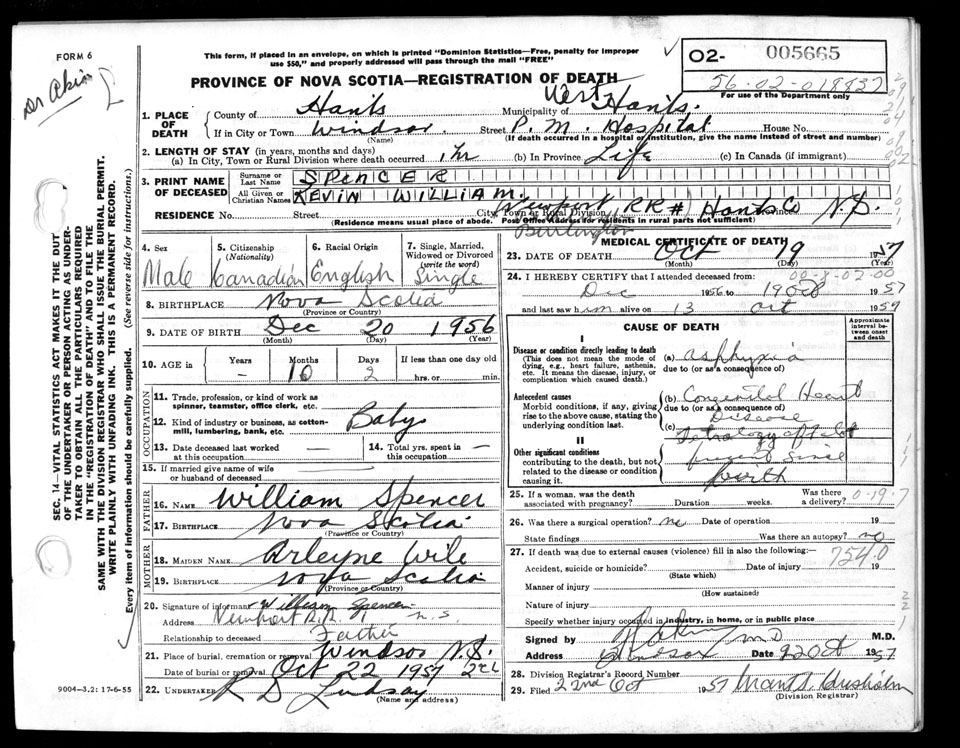 FORM 6
Dr Akin
This form, if placed in an envelope, on which is printed "Dominion Statistics—Free, penalty for improper
use $50," and properly addressed will pass through the mail "FREE"
O2- 005665
56-02-018837
For use of the Department only
PROVINCE OF NOVA SCOTIA—REGISTRATION OF DEATH
1. PLACE OF DEATH
County of Hants Municipality of West Hants.
If in City or Town Windsor. Street P. M. Hospital House No.
(Name) (If death occurred in a hospital or institution, give the name instead of street and number)
2. LENGTH OF STAY (in years, months and days)
(a) In City, Town or Rural Division where death occurred 1 hr (b) In Province Life (c) In Canada (if immigrant)
3. PRINT NAME OF DECEASED
Surname or Last Name SPENCER
All Given or Christian Names KEVIN WILLIAM.
RESIDENCE No. Street City, Town or Rural Division Newport RR# Hants Co Province N.S.
(Residence means usual place of abode. Post Office Address for residents in rural parts not sufficient)
Burlington
4. Sex Male
5. Citizenship (Nationality) Canadian
6. Racial Origin English
7. Single, Married, Widowed or Divorced (write the word) Single
8. BIRTHPLACE Nova Scotia
(Province or Country)
9. DATE OF BIRTH Dec 20 1956
(Month) (Day) (Year)
10. AGE in Years — Months 10 Days 2 If less than one day old
hrs. or min.
OCCUPATION
11. Trade, profession, or kind of work as
spinner, teamster, office clerk, etc.
12. Kind of industry or business, as cotton-
mill, lumbering, bank, etc. Baby
13. Date deceased last worked at this occupation —
14. Total yrs. spent in this occupation —
15. If married give name of wife
or husband of deceased
FATHER
16. NAME William Spencer
17. BIRTHPLACE Nova Scotia
(Province or Country)
MOTHER
18. MAIDEN NAME Arleyne Wile
19. BIRTHPLACE Nova Scotia
(Province or Country)
20. Signature of informant William Spencer
Address Newport R.R. 1 N.S.
Relationship to deceased Father
21. Place of burial, cremation or removal Windsor N.S.
Date of burial or removal Oct 22 1957
22. UNDERTAKER R D Lindsay
(Name and address)
9004—3.2: 17-6-55
MEDICAL CERTIFICATE OF DEATH
23. DATE OF DEATH Oct 19 1957
(Month) (Day) (Year)
24. I HEREBY CERTIFY that I attended deceased from: 00-8-02-00
Dec 1956 to 19 Oct 1957
and last saw him alive on 13 Oct 1957
CAUSE OF DEATH
Approximate interval between onset and death
I
Disease or condition directly leading to death
(This does not mean the mode of dying, e.g., heart failure, asthenia, etc. It means the disease, injury, or complication which caused death.)
(a) asphyxia
due to (or as a consequence of)
Antecedent causes
Morbid conditions, if any, giving rise to the above cause, stating the underlying condition last.
(b) Congenital Heart
due to (or as a consequence of)
Disease
(c) Tetralogy of Fallot
II
Other significant conditions
contributing to the death, but not related to the disease or condition causing it.
present since
birth
25. If a woman, was the death
associated with pregnancy? Duration weeks. Was there a delivery? 0-19-7
26. Was there a surgical operation? no Date of operation 19
State findings Was there an autopsy? no
27. If death was due to external causes (violence) fill in also the following:—
754.0
Accident, suicide or homicide? Date of injury 19
(State which)
Manner of injury
(How sustained)
Nature of injury
Specify whether injury occurred in industry, in home, or in public place
Signed by Akin MD M.D.
Address Windsor Date 22 Oct 1957
28. Division Registrar's Record Number
29. Filed 22nd Oct 1957
(Division Registrar)
SEC. 14—VITAL STATISTICS ACT MAKES IT THE DUTY
OF THE UNDERTAKER OR PERSON ACTING AS UNDER-
TAKER TO OBTAIN ALL THE PARTICULARS REQUIRED
IN THE "REGISTRATION OF DEATH" AND TO FILE THE
SAME WITH THE DIVISION REGISTRAR WHO SHALL ISSUE THE BURIAL PERMIT.
WRITE PLAINLY WITH UNFADING INK. THIS IS A PERMANENT RECORD.
Every item of information should be carefully supplied. (See reverse side for instructions.)